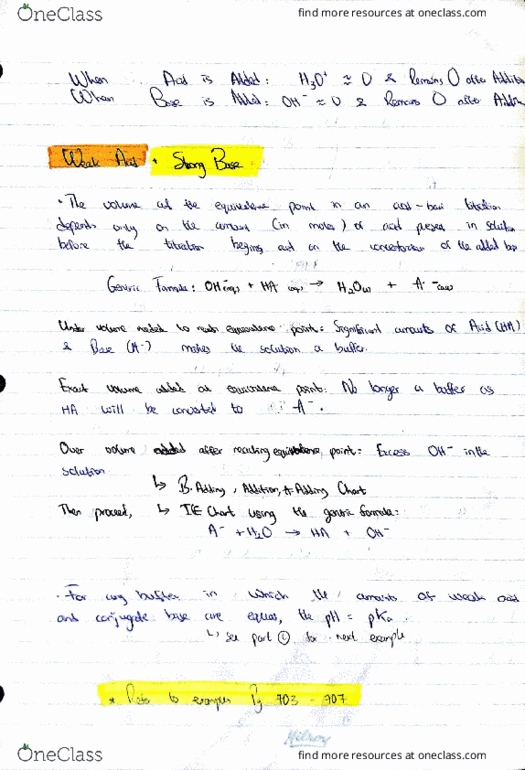 OneClass
find more resources at oneclass.com
When Acid is Added: H3O+ ≈ 0 & Remains 0 after Addition
When Base is Added: OH- ≈ 0 & Remains 0 after Addition
Weak Acid + Strong Base
• The volume at the equivalence point in an acid-base titration
depends only on the amount (in moles) of acid present in solution
before the titration begins and on the concentration of the added base
Generic Formula: OH-(aq) + HA (aq) → H2O(l) + A-(aq)
Under volume needed to reach equivalence point: Significant amounts of Acid (HA)
& Base (A-) makes the solution a buffer.
Exact volume added at equivalence point: No longer a buffer as
HA will be converted to A-.
Over volume added after reaching equivalence point: Excess OH- in the
solution
↳ B. Adding, Addition, A. Adding Chart
Then proceed, ↳ ICE Chart using the generic formula:
A- + H2O → HA + OH-
• For any buffer in which the amounts of weak acid
and conjugate base are equal, the pH = pKa
↳ see part © for next example
* Refer to examples Pg 903 - 907
OneClass
find more resources at oneclass.com